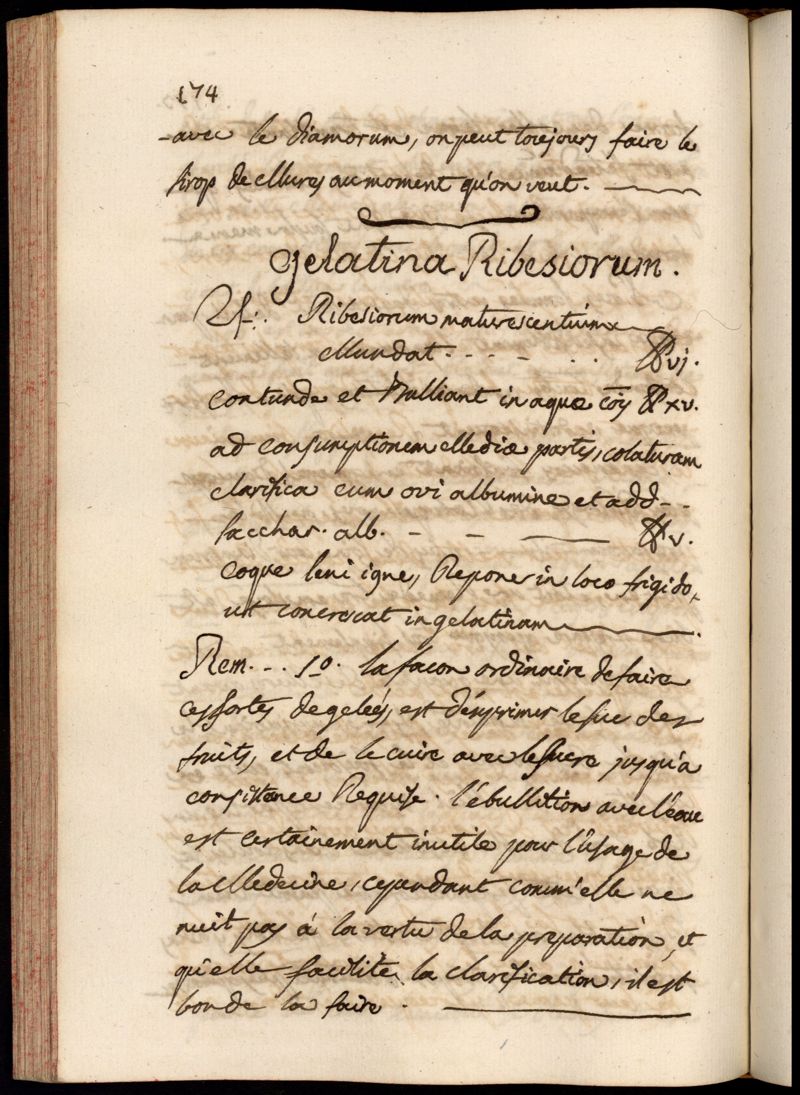 174
avec le diamorum, on peut toujours faire le
sirop de Mures au moment qu'on veut.
Gelatina Ribesiorum.
Ribesiorum maturescentium
Mundat. vj.
contunde et bulliant in aquæ cõis ℔ xv.
ad consumptionem Mediæ partis, colaturam
clarifica cum ovi albumine et add
sacchar. alb. ℔ v.
coque leni igne, Repone in loco frigido,
ut concrescat in gelatinam
Rem. 1.º la façon ordinaire de faire
ces sortes de gelées, est d'exprimer le suc des
fruits, et de le cuire avec le sucre jusqu'a
consistence Requise. l'ébullition avec l'eau
est certainement inutile pour l'usage de
la Medecine, cependant comm'elle ne
nuit pas á la vertu de la preparation, et
qu'elle facilite la clarification, il est
bon de la faire.